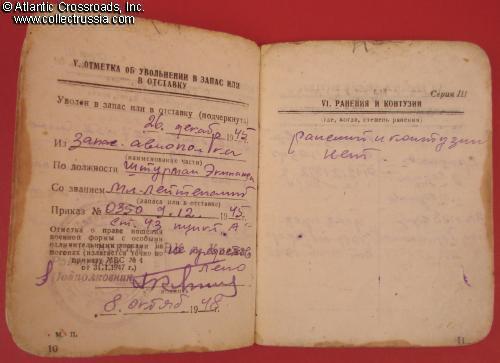 © Atlantic Crossroads, Inc.
www.collectrussia.com
V. ОТМЕТКА ОБ УВОЛЬНЕНИИ В ЗАПАС ИЛИ
В ОТСТАВКУ
Уволен в запас или в отставку (подчеркнуть)
26 декабря 1945.
Из запас. авиаполка
(наименование части)
По должности Штурман Экипажа
Со званием Мл-лейтенант
(запаса или в отставке)
Приказ № 0350 9.12. 1945.
Ст. 43 пункт „А"
Отметка о праве ношения
военной формы с особыми
отличительными знаками на
погонах (излагается точно по
приказу МВС № 4
от 31.1.1947 г.)
Не предостав
лено
Подполковник
8 октяб 1948.
М. П.
10
Серия III
VI. РАНЕНИЯ И КОНТУЗИИ
(где, когда, степень ранения)
ранений и контузии
нет.
11